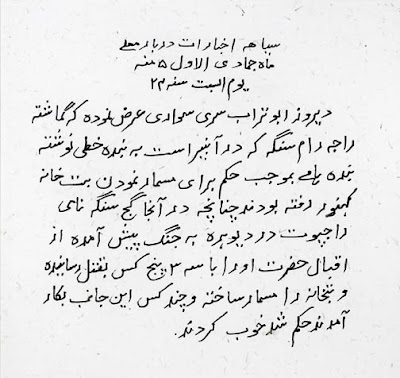 سیاهه اخبارات دربار معلی
ماه جمادی الاول ۵ سنه
یوم السبت سنه ۲۳
دیروز ابو تراب سری سواری عرض نموده که گماشته
راجه رام سنگه که در آنبیر است به بنده خطی نوشته
بنده بموجب حکم برای مسمار نمودن بت خانه
رفته بودند چنانچه در آنجا گج سنگه نامی
راجپوت در دیوهره به جنگ پیش آمده از
اقبال حضرت او را با سه ۳ پنج کس بقتل رسانیده
و بتخانه را مسمار ساخته و چند کس این جانب بکار
آمدند حکم شد خوب کردند.